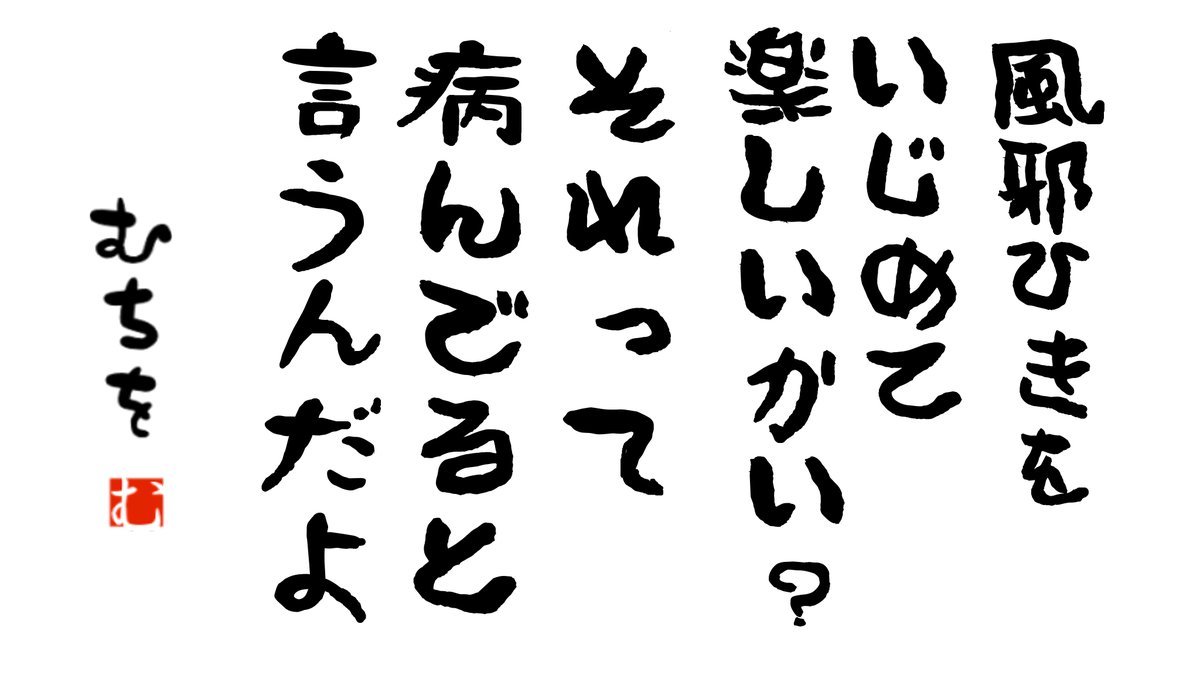 風邪ひきを
いじめて
楽しいかい?
それって
病んでると
言うんだよ
むちを
む